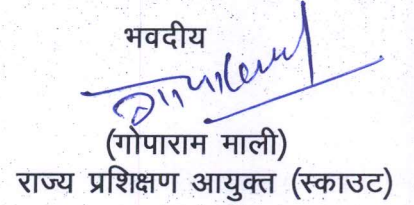 भवदीय
(गोपाराम माली)
राज्य प्रशिक्षण आयुक्त (स्काउट)